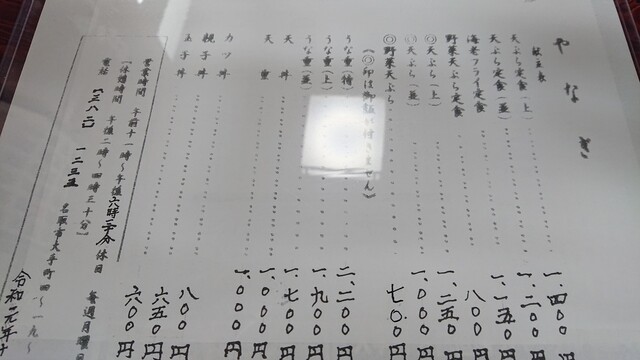 やなぎ
献立表
天ぷら定食(上)………一、四〇〇円
天ぷら定食(並)………一、二〇〇円
海老フライ定食………一、一五〇円
野菜天ぷら定食………八〇〇円
◎天ぷら(上)………一、二五〇円
◎天ぷら(並)………一、〇〇〇円
◎野菜天ぷら………七〇〇円
(◎印は御飯が付きません)
うな重(特)………二、二〇〇円
うな重(上)………一、九〇〇円
うな重(並)………一、七〇〇円
天丼………一、〇〇〇円
天重………一、〇〇〇円
カツ丼………八〇〇円
親子丼………六五〇円
玉子丼………六〇〇円
営業時間 午前十一時〜午後六時三十分 休日 毎週月曜日
(休憩時間 午後二時〜四時三十分)
電話 【三八二】 一二三五 名取市大手町四〜一九〜
令和元年